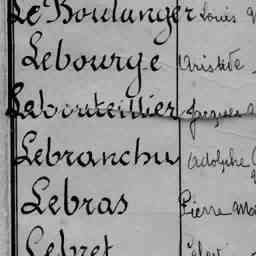 Le Boulanger Louis
Lebourge Aristide
Lebouteillier Jacques
Lebranchu Adolphe
Lebras Pierre Ma
Lebret